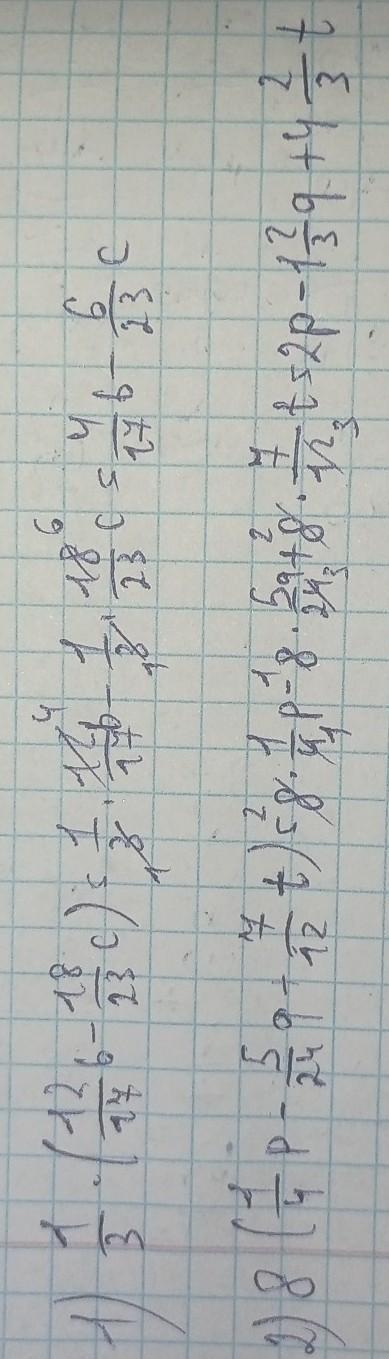 1) 1/3 · (12/17 b - 18/23 c) = 1/3 · 12/17 b - 1/3 · 18/23 c = 4/17 b - 6/23 c
2) 8 (1/4 p - 5/24 q + 7/12 t) = 8 · 1/4 p - 8 · 5/24 q + 8 · 7/12 t = 2p - 1 2/3 q + 4 2/3 t